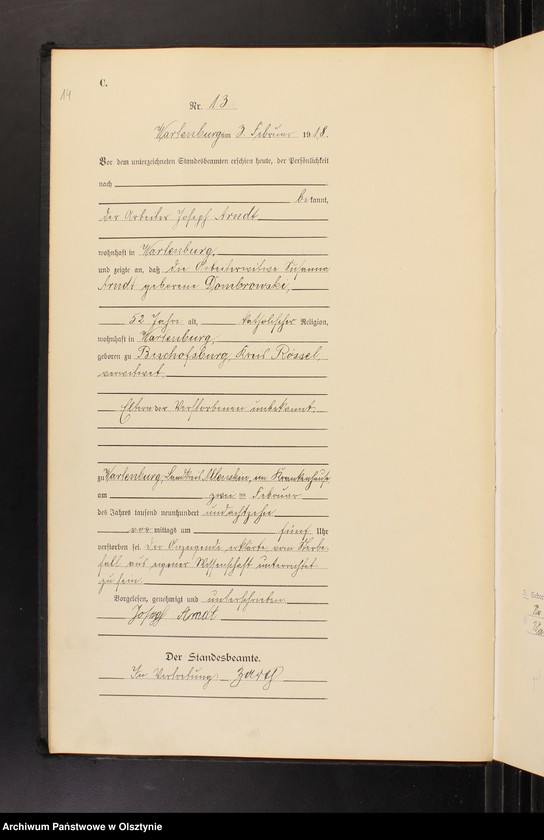 14
C.
Nr. 13
Wartenburg am 3 Februar 1918.
Vor dem unterzeichneten Standesbeamten erschien heute, der Persönlichkeit
nach
bekannt,
der Arbeiter Joseph Arndt
wohnhaft in Wartenburg,
und zeigte an, daß die Arbeiterwitwe Susanna
Arndt geborene Dombrowski,
52 Jahre alt, katholischer Religion,
wohnhaft in Wartenburg,
geboren zu Bischofsburg, Kreis Rössel,
verwitwet.
Eltern der Verstorbenen unbekannt.
zu Wartenburg, Landkreis Allenstein, im Krankenhause
am zwei = Februar
des Jahres tausend neunhundert undachtzehn
vor mittags um fünf Uhr
verstorben sei. Der Anzeigende erklärte, vom Sterbe
fall aus eigener Wissenschaft unterrichtet
zu sein.
Vorgelesen, genehmigt und unterschrieben
Joseph Arndt
Der Standesbeamte.
In Vertretung
Archiwum Państwowe w Olsztynie